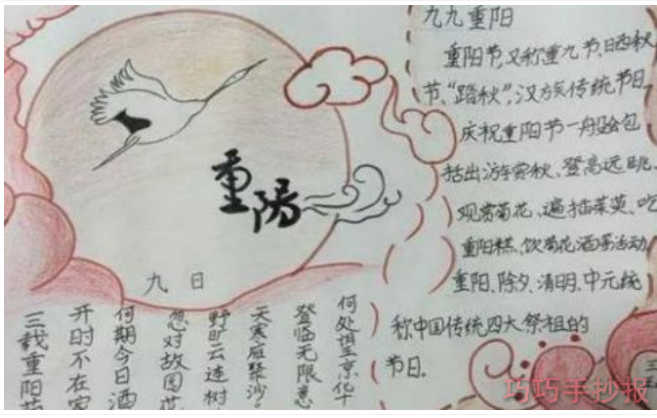 九九重阳
重阳节,又称重九节、晒秋
节、“踏秋”,汉族传统节日
庆祝重阳节一般会包
括出游赏秋、登高远眺、
观赏菊花、遍插茱萸、吃
重阳糕、饮菊花酒等活动
重阳、除夕、清明、中元统
称中国传统四大祭祖的
节日.
重陽
九 日
何处望京华
登临无限意
天寒雁聚沙。
野旷云连树,
忽对故园花
何期今日酒
开时不在家
三载重阳节
三
五
巧巧手抄报